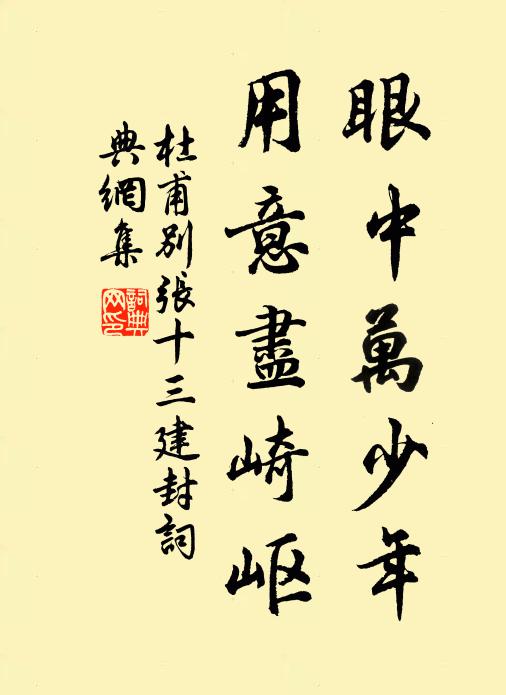 眼中萬少年
用意盡崎嶇
杜甫別張十三建封詞
典網集
詞典網印